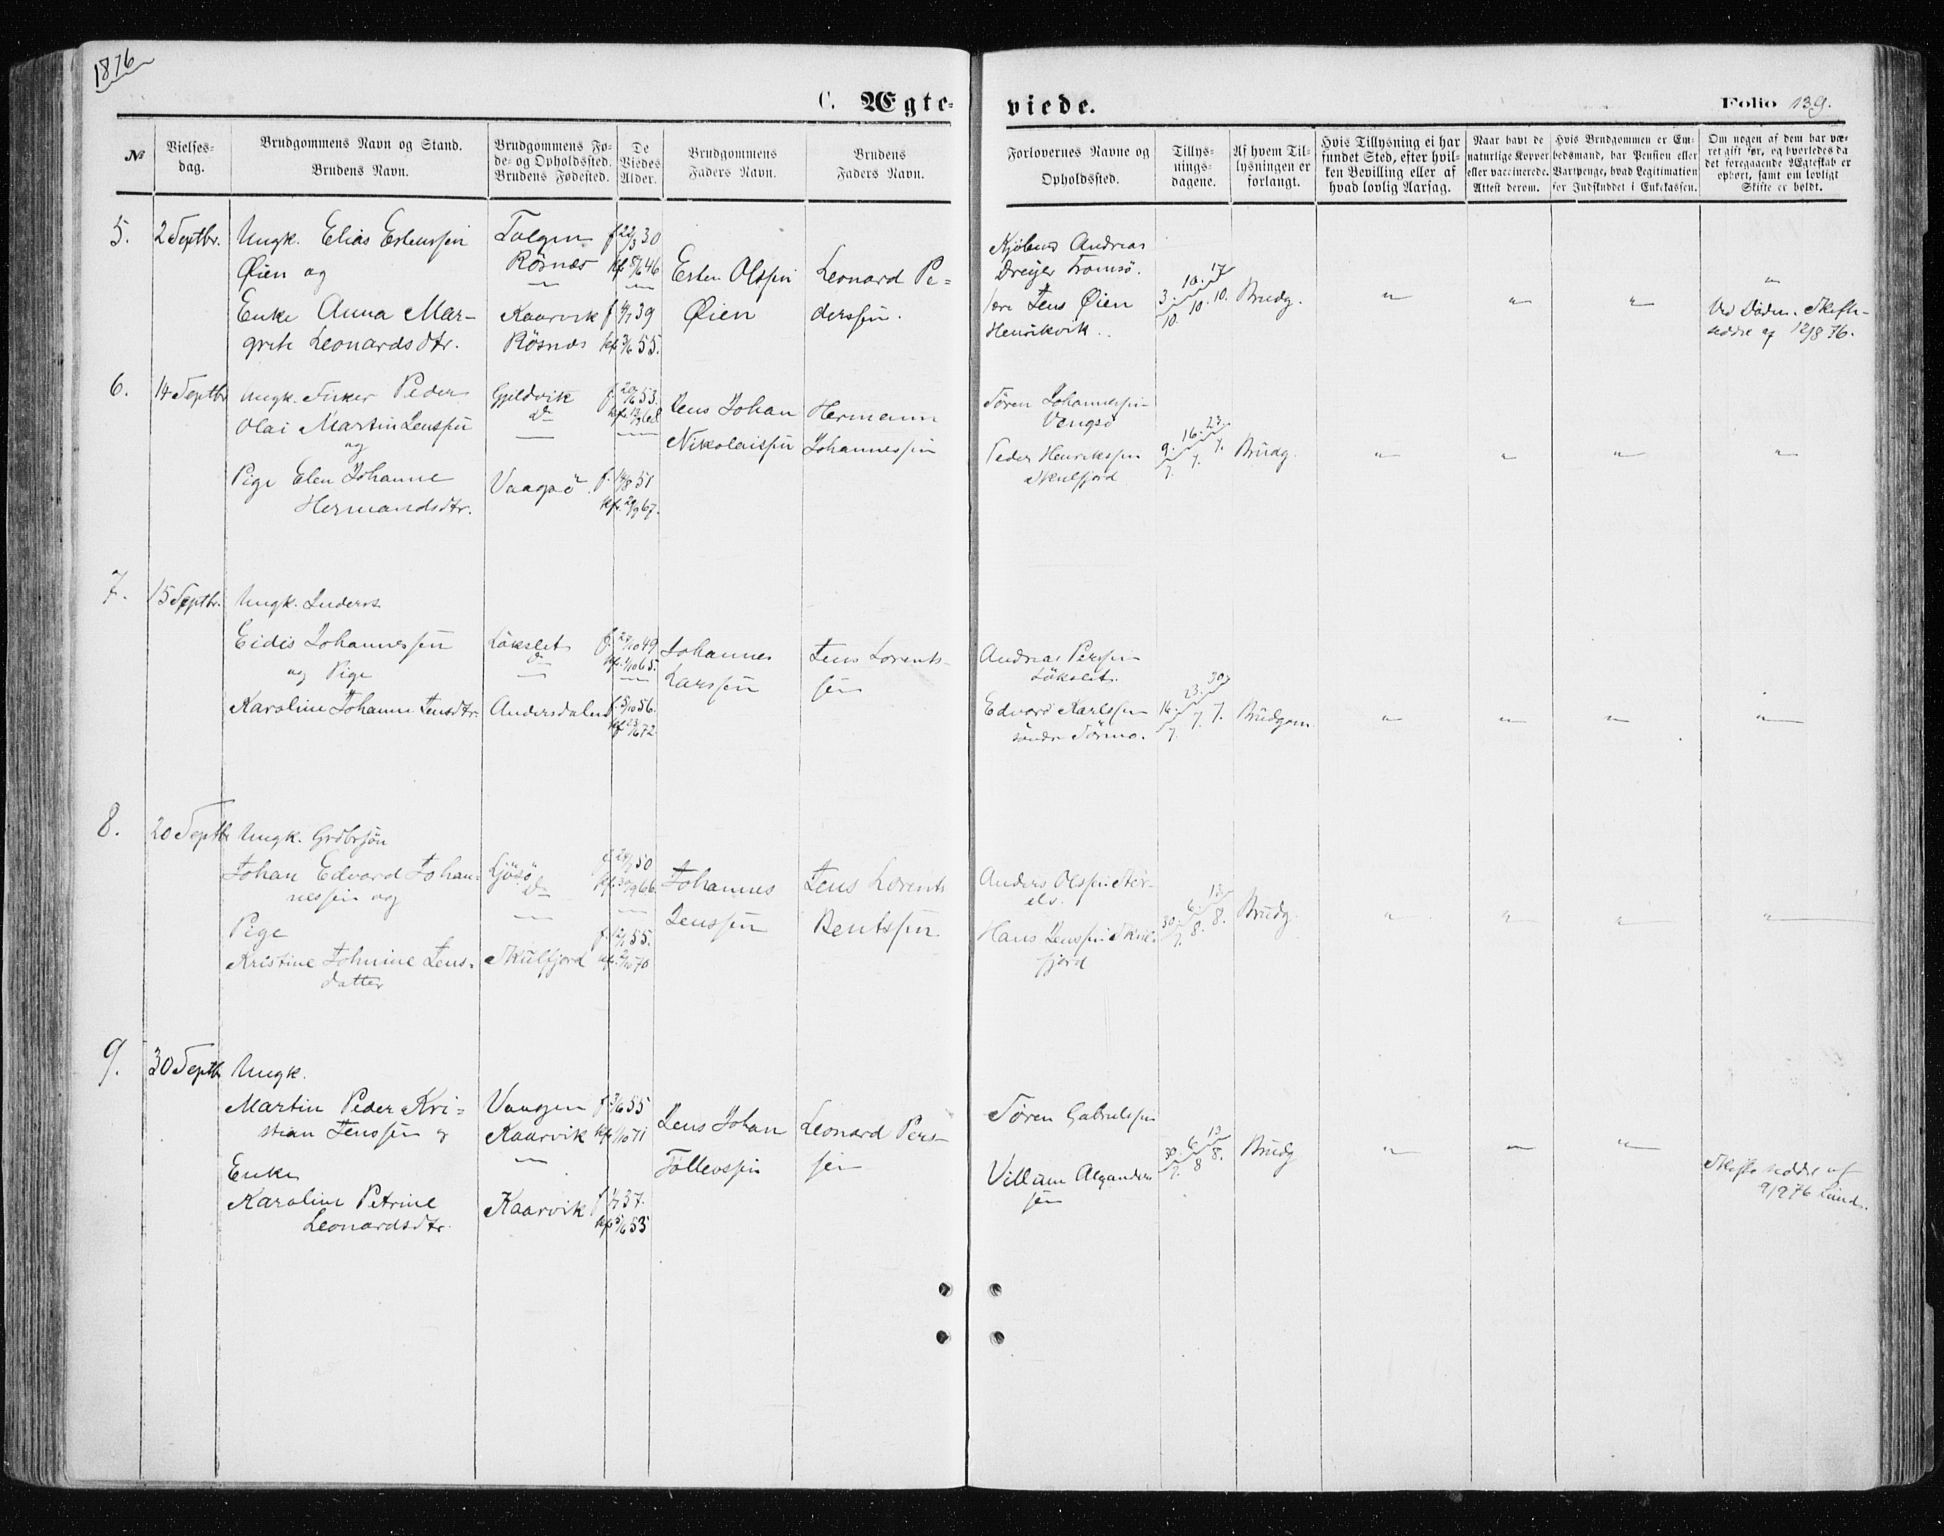 1876
C. Ægte-
viede.
Folio 139.
№
Vielses-
dag.
Brudgommens Navn og Stand.
Brudens Navn.
Brudgommens Fø-
de- og Opholdssted.
Brudens Fødested.
De
Viedes
Alder.
Brudgommens
Faders Navn.
Brudens
Faders Navn.
Forlovernes Navne og
Opholdssted.
Tillys-
nings-
dagene.
Af hvem Til-
lysningen er
forlangt.
Hvis Tillysning ei har
fundet Sted, efter hvil-
ken Bevilling eller af
hvad lovlig Aarsag.
Naar havt de
naturlige Kopper
eller vaccinerede.
Attest derom.
Hvis Brudgommen er Em-
bedsmand, har Pension eller
Vartpenge, hvad Legitimation
for Indskuddet i Enkekassen.
Om nogen af dem har væ-
ret gift før, og hvorledes da
det foregaaende Ægteskab er
ophørt, samt om lovligt
Skifte er holdt.
5.
2 Septbr.
Ungk. Elias Estenssen
Øien og
Enke Anna Mar-
grete Leonardsdtr.
Tolgen
Rösnæs
Kaarvik
Rösnæs
f 22/3 30
kf 5/6 46
f 4/7 39
kf 3/6 55.
Esten Olssen
Øien
Leonard Pe-
derssen.
Kjøbmd Andreas
Dreijer Tromsö.
Jens Øien
Henrikvik.
3. 10. 17
10. 10. 10.
Brudg.
"
"
"
"
Ved Döden. Skifte-
seddel af 12/8 76.
6.
14 Septbr
Ungk. Fisker Peder
Olai Martin Jenssen
og
Pige Elen Johanne
Hermandsdtr.
Gjeldvik
do
Vaagsö
f. 20/6 53.
kf. 13/9 68
f. 14/8 51
kf. 29/9 67.
Jens Johan
Nikolaissen
Hermann
Johannessen
Sören Johannessen
Vengsö
Peder Henrikssen
Skulfjord
9. 16. 23.
7. 7. 7.
Brudg.
"
"
"
"
7.
15 Septbr.
Ungk. Inderst
Eidis Johannessen
og Pige
Karoline Johanne Jensdtr.
Lökslet
do
Andersdalen
f. 27/10 49
kf. 1/10 65.
f. 5/10 56.
kf 23/6 72.
Johannes
Larssen
Jens Lorents-
sen
Andreas Perssen
Lökslet.
Edvard Karlssen
söndre Törmo.
16. 23. 30.
7. 7. 7.
Brudgom.
"
"
"
"
8.
20 Septbr
Ungk. Grdbrsön
Johan Edvard Johan-
nessen og
Pige
Kristine Johnine Jens-
datter
Ljösö
do
Skulfjord
f. 24/7 50
kf. 30/9 66.
f. 12/7 55.
kf. 2/10 70
Johannes
Jenssen
Jens Lorents
Bentssen
Anders Olssen Stor-
elv.
Hans Jenssen Skul-
fjord
30. 6. 13
7. 8. 8.
Brudg.
"
"
"
"
9.
30 Septbr
Ungk.
Martin Peder Kri-
stian Jenssen og
Enke
Karoline Petrine
Leonardsdtr.
Vaagen
Kaarvik
Kaarvik
f 3/6 55
kf 1/10 71
f 1/7 37.
kf 5/6 53
Jens Johan
Tollevssen
Leonard Pers-
sen
Sören Gabrielssen
Villum Algander-
sen
30. 6. 13
7. 8 8.
Brudg
"
"
"
Skifteseddel af
9/9 76 Lund.